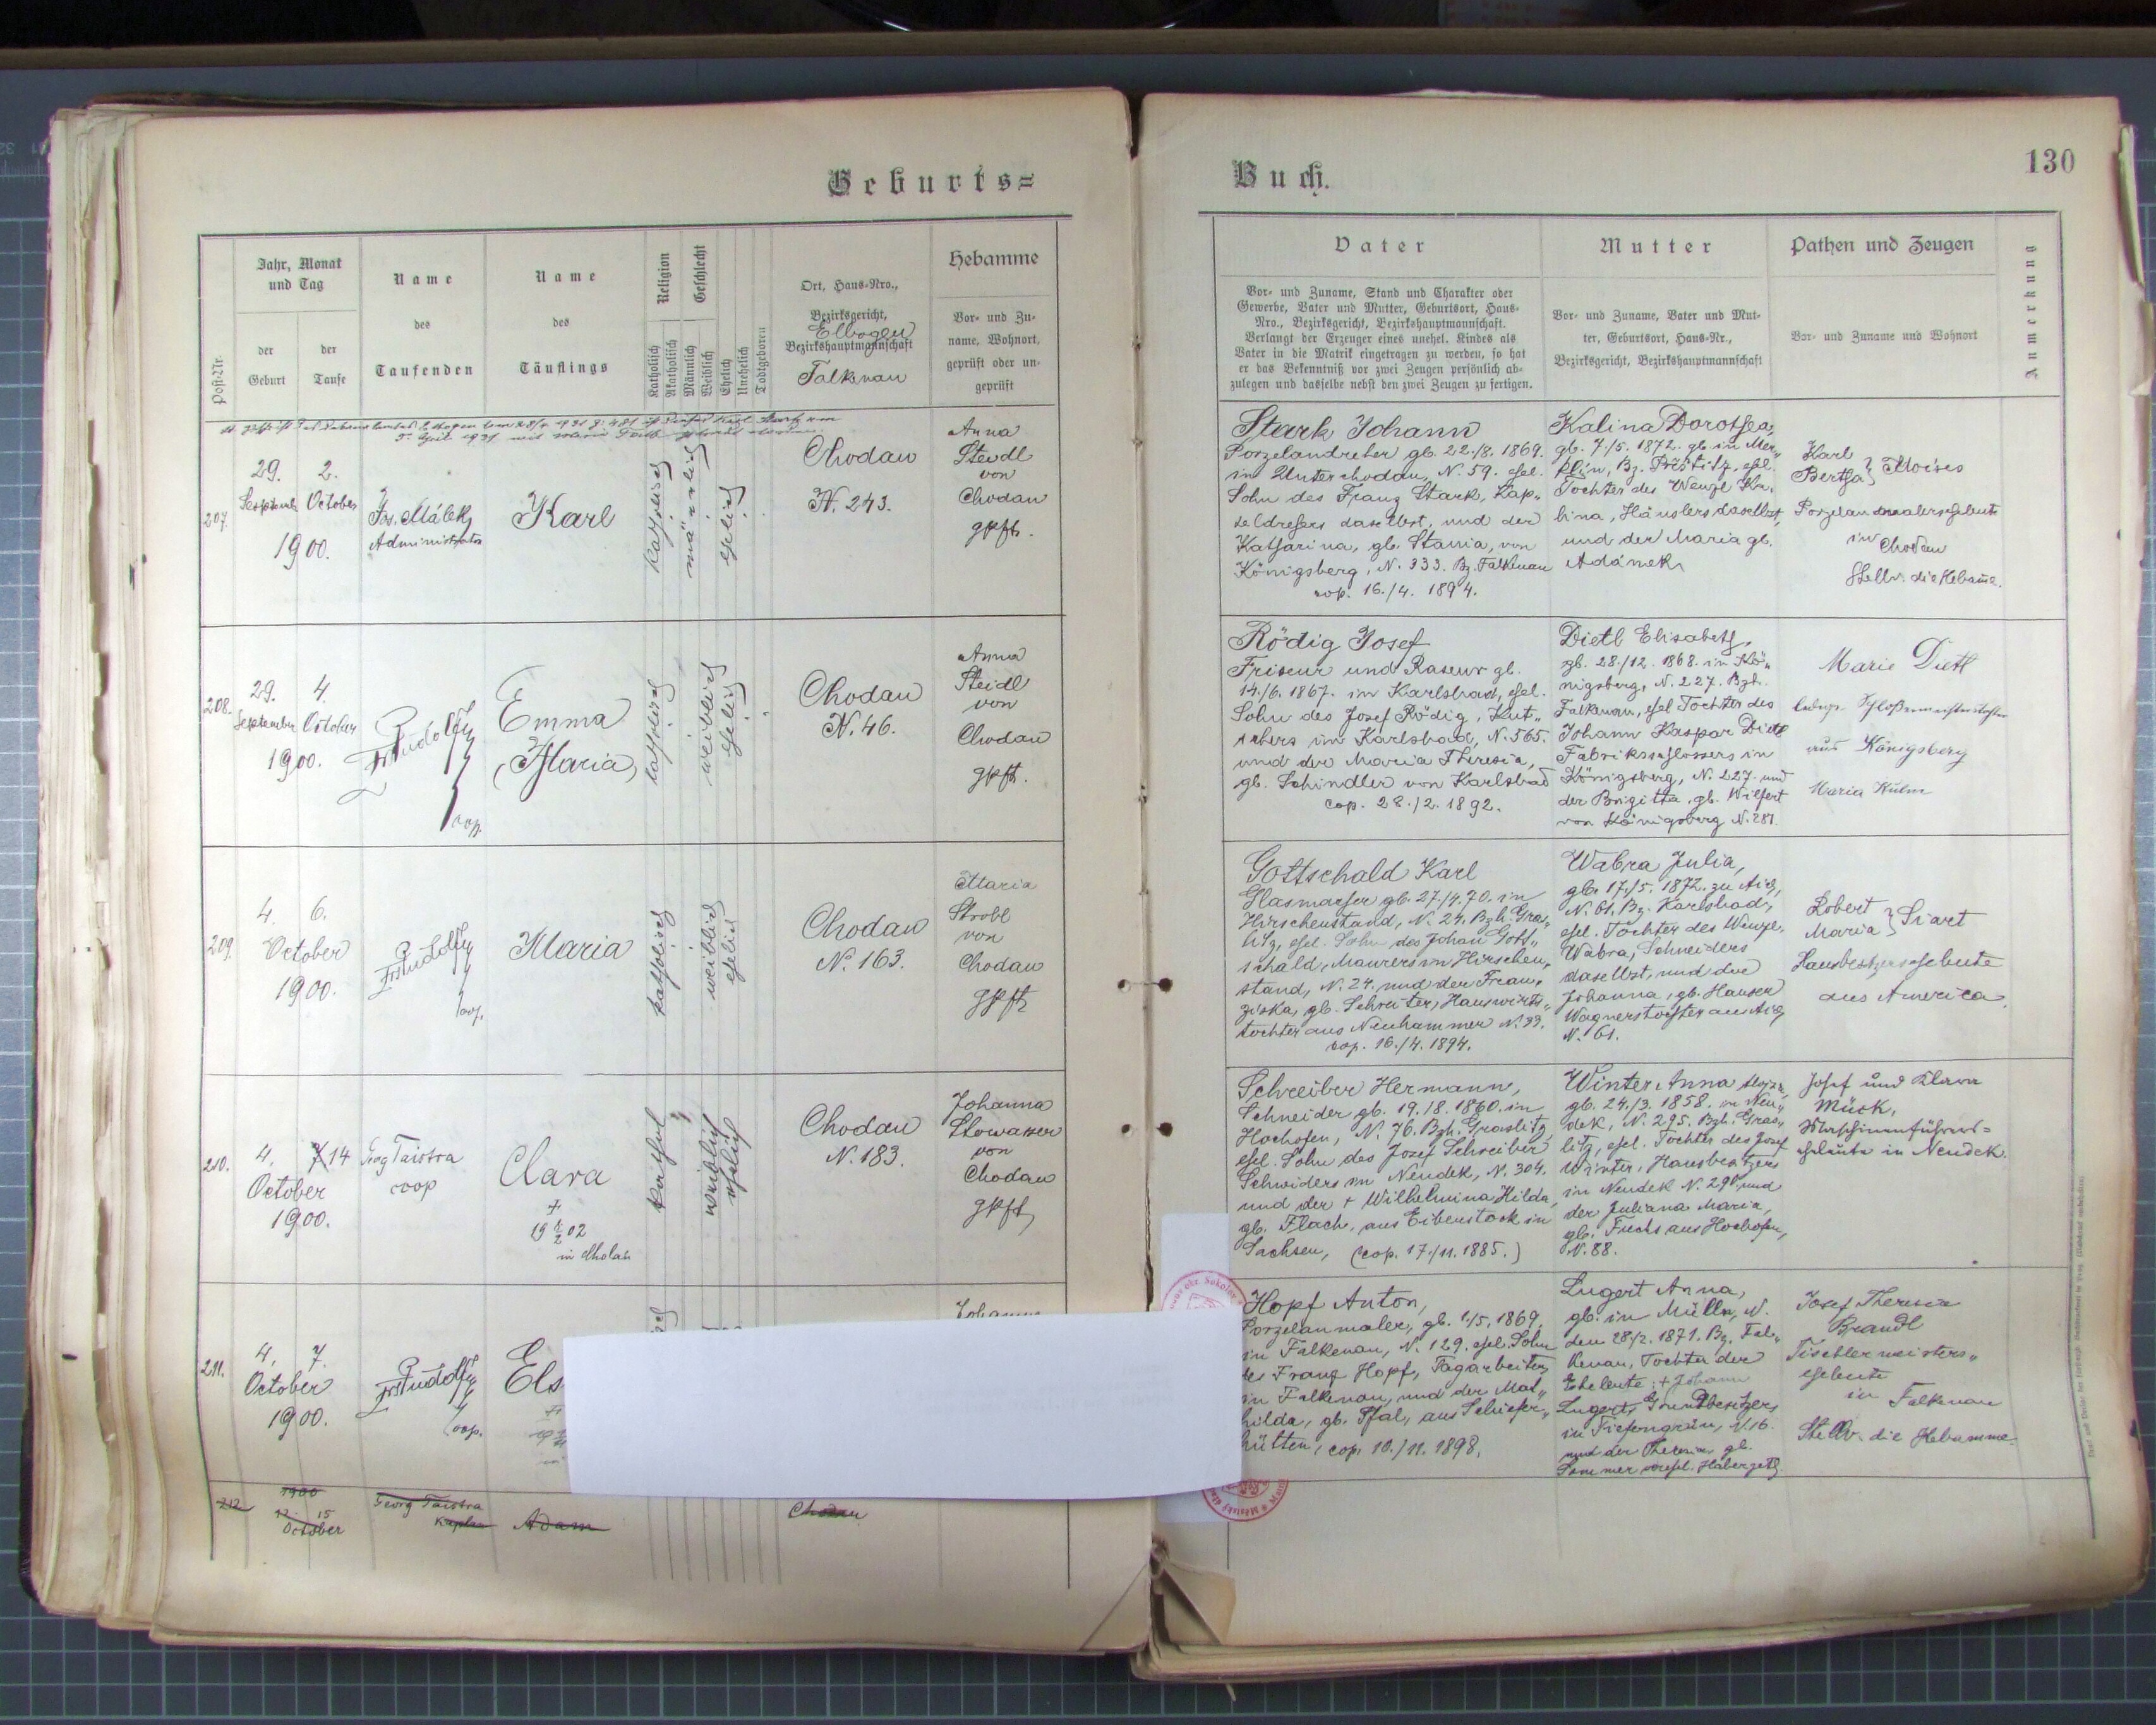 Geburts=
Post-Nr.
Jahr, Monat
und Tag
der
Geburt
der
Taufe
Name
des
Taufenden
Name
des
Täuflings
Religion
Katholisch
Akatholisch
Geschlecht
Männlich
Weiblich
Ehelich
Unehelich
Todtgeboren
Ort, Haus-Nro.,
Bezirksgericht,
Elbogen
Bezirkshauptmannschaft
Falkenau
Hebamme
Vor- und Zu-
name, Wohnort,
geprüft oder un-
geprüft
207.
29.
September
2.
October
1900.
Fr. Málek
Administrator
Karl
katholisch
männlich
ehelich
Chodau
N. 243.
Anna
Steidl
von
Chodau
gpft.
208.
29.
September
4.
October
1900.
Fr. Rudolf
coop.
Emma
(Maria)
katholisch
weiblich
ehelich
Chodau
N. 46.
Anna
Steidl
von
Chodau
gpft.
209.
4.
6.
October
1900.
Fr. Rudolf
coop.
Maria
katholisch
weiblich
ehelich
Chodau
N. 163.
Maria
Strobl
von
Chodau
gpft
210.
4.
7 14
October
1900.
Georg Taistra
coop
Clara
†
19 02
in Chodau
kathol
weiblich
ehelich
Chodau
N. 183.
Johanna
Stowasser
von
Chodau
gpft
211.
4.
7.
October
1900.
Fr. Rudolf
coop.
Els
Johanna
212
1900
12. 15
October
Georg Taistra
Kaplan
Adam
Chodau
Buch.
130
Vater
Vor- und Zuname, Stand und Charakter oder
Gewerbe, Vater und Mutter, Geburtsort, Haus-
Nro., Bezirksgericht, Bezirkshauptmannschaft.
Verlangt der Erzeuger eines unehel. Kindes als
Vater in die Matrik eingetragen zu werden, so hat
er das Bekenntniß vor zwei Zeugen persönlich ab-
zulegen und dasselbe nebst den zwei Zeugen zu fertigen.
Mutter
Vor- und Zuname, Vater und Mut-
ter, Geburtsort, Haus-Nr.,
Bezirksgericht, Bezirkshauptmannschaft
Pathen und Zeugen
Vor- und Zuname und Wohnort
Anmerkung
Stark Johann
Porzelandreher gb. 22./8. 1869.
in Unterchodau, N. 59. ehel.
Sohn des Franz Stark, Kap„
seldrehers daselbst, und der
Katharina, gb. Stania, von
Königsberg, N. 333. Bz. Falkenau
cop. 16./4. 1894.
Kalina Dorothea,
gb. 7./5. 1872. gb in Mer„
klin, Bz. Přestitz, ehel.
Tochter des Wenzl Ka„
lina, Häuslers daselbst,
und der Maria gb.
Adámek
Karl
Bertha } Moises
Porzelanmalerseheleute
in Chodau
Stellv. die Hebame.
Rödig Josef
Friseur und Raseur gb.
14./6. 1867. in Karlsbad, ehel.
Sohn des Josef Rödig, Kut„
schers in Karlsbad, N. 565.
und der Maria Theresia,
gb. Schindler von Karlsbad
cop. 28./2. 1892.
Dietl Elisabeth,
gb. 28./12. 1868. in Kö„
nigsberg, N. 227. Bzh.
Falkenau, ehel Tochter des
Johann Kaspar Dietl
Fabriksschlossers in
Königsberg, N. 227. und
der Brigitta, gb. Wilfert
von Königsberg N. 281.
Marie Dietl
aus Königsberg
Maria Kulm
Gottschald Karl
Glasmacher gb. 27./4. 70. in
Hirschenstand, N. 24. Bzh. Gras„
litz, ehel. Sohn des Johan Gott„
schald, Maurers in Hirschen„
stand, N. 24. und der Fran„
ziska, gb. Schreiter, Hauswirts„
tochter aus Neuhammer N. 33.
cop. 16./4. 1894.
Wabra Julia,
gb. 17./5. 1872. zu Aich,
N. 61. Bz. Karlsbad,
ehel. Tochter des Wenze.
Wabra, Schneiders
daselbst, und der
Johanna, gb. Hauser
Wagnerstochter aus Aich
N. 61.
Robert
Maria } Siart
Hausbesitzerseheleute
aus America.
Schreiber Hermann,
Schneider gb. 19./8. 1860. in
Hochofen, N. 76. Bzh. Graslitz
ehel. Sohn des Josef Schreiber
Schneiders in Neudek, N. 304.
und der † Wilhelmina Hilda,
gb. Flach, aus Eibenstock in
Sachsen, (cop. 17./11. 1885.)
Winter Anna Aloisia,
gb. 24./3. 1858. in Neu„
dek, N. 295. Bzh. Gras„
litz, ehel. Tochter des Josef
Winter, Hausbesitzers
in Neudek N. 290, und
der Juliana Maria,
gb. Fuchs aus Hochofen,
N. 88.
Josef und Klara
Mück,
Maschinenführers=
eheleute in Neudek.
Hopf Anton,
Porzelanmaler, gb. 1./5. 1869.
in Falkenau, N. 129. ehel. Sohn
des Franz Hopf, Tagarbeiters
in Falkenau, und der Mat„
hilda, gb. Pfal, aus Schiefer„
hütten, cop. 10./11. 1898.
Lugert Anna,
gb. in Mülln, N.
den 28/2. 1871. Bz. Fal„
kenau, Tochter der
Eheleute: † Johann
Lugert, Grundbesitzers
in Tiefengrün, N. 16.
und der Theresia gb.
Sommer
Josef Theresia
Brandl
Tischlermeisters„
eheleute
in Falkenau
Stellv. die Hebamme.